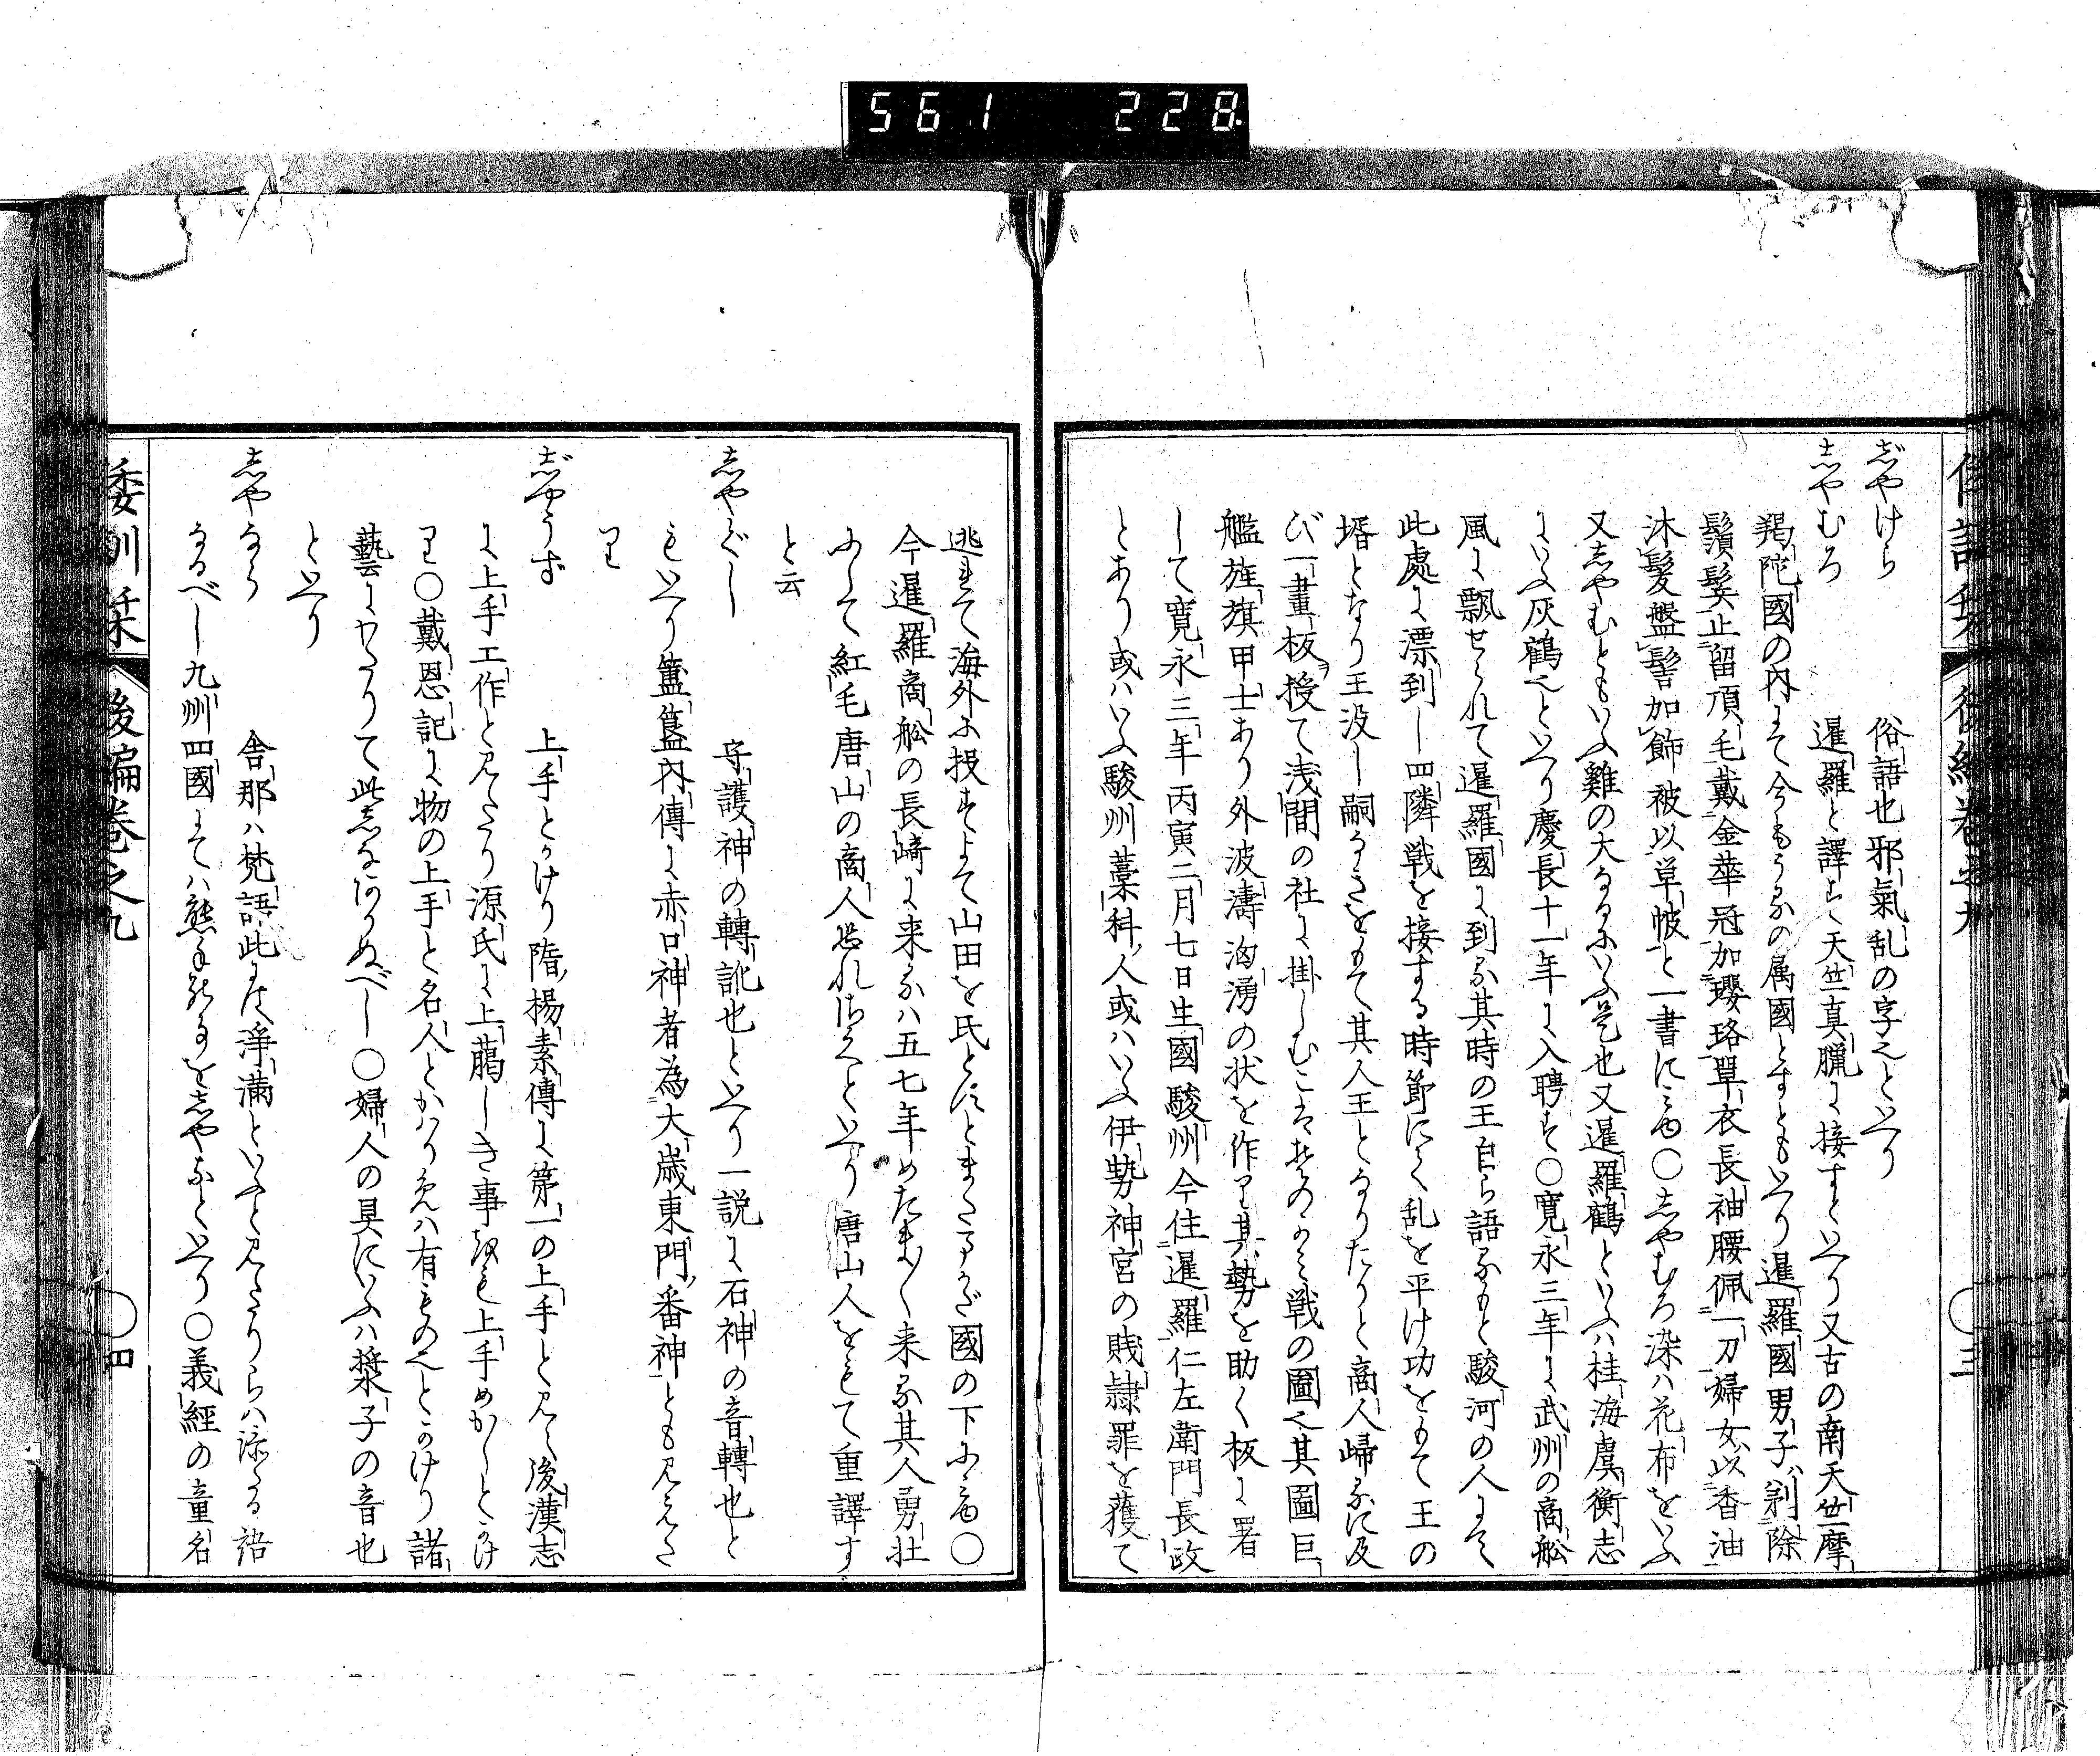 561 228.
倭訓栞 後編卷之九 〇三
志゛やけら 俗語也邪氣乱の字也といへり
志やむろ 暹羅と譯す天竺真臘に接すといへり又古の南天竺摩
羯陀國の内にて今もうるの属國とすともいへり暹羅國男子ハ剃除
鬚髮止留頂毛戴金華冠加瓔珞單衣長袖腰佩一刀婦女以香油
沐髮盤髻加飾被以草帔と一書にミゆ〇志やむろ染ハ花布をいふ
又志やむともいふ雞の大なるにいふ是也又暹羅鶴といふハ桂海虞衡志
にいふ灰鶴也といへり慶長十一年に入聘す〇寛永三年に武州の商舩
風に飄せられて暹羅國に到る其時の王自ら語るもと駿河の人にて
此處に漂到し四隣戦を接する時節にて乱を平け功をもて王の
壻となり王没し嗣なきをもて其人王となりたりと商人歸るに及
び一畫板ヲ授て浅間の社に掛しむこは其のかミ戦の圖也其圖巨
艦旌旗甲士あり外波濤洶湧の状を作り其勢を助く板に署
して寛永三年丙寅二月七日生國駿州今住暹羅仁左衛門長政
とあり或ハいふ駿州藁科人或ハいふ伊勢神宮の賤隷罪を獲て
逃れて海外に投すよて山田を氏とすとまた事ハ國の下にみゆ〇
今暹羅商舩の長崎に来るハ五七年めたま〱来る其人勇壮
にして紅毛唐山の商人恐れ避くといへり唐山人をもて重譯す
と云
志やぐし 守護神の轉訛也といへり一説に石神の音轉也と
もいへり簠簋内傳に赤口神者為大歳東門番神ともみえた
り
志゛やうず 上手とかけり隋楊素傳に第一の上手とみえ後漢志
に上手工作と見えたり源氏に上臈しき事をも上手めかしとかけ
り〇戴恩記に物の上手と名人とかハりめハ有もの也とかけり諸
藝にわたりて此志なハりぬべし〇婦人の具にいふハ漿子の音也
といへり
志やなり 舎那ハ梵語此には淨満といふと見えたりらハ添る語
なるべし九州四國にてハ熊手能事を志やなといへり〇義經の童名
倭訓栞 後編卷之九 〇四